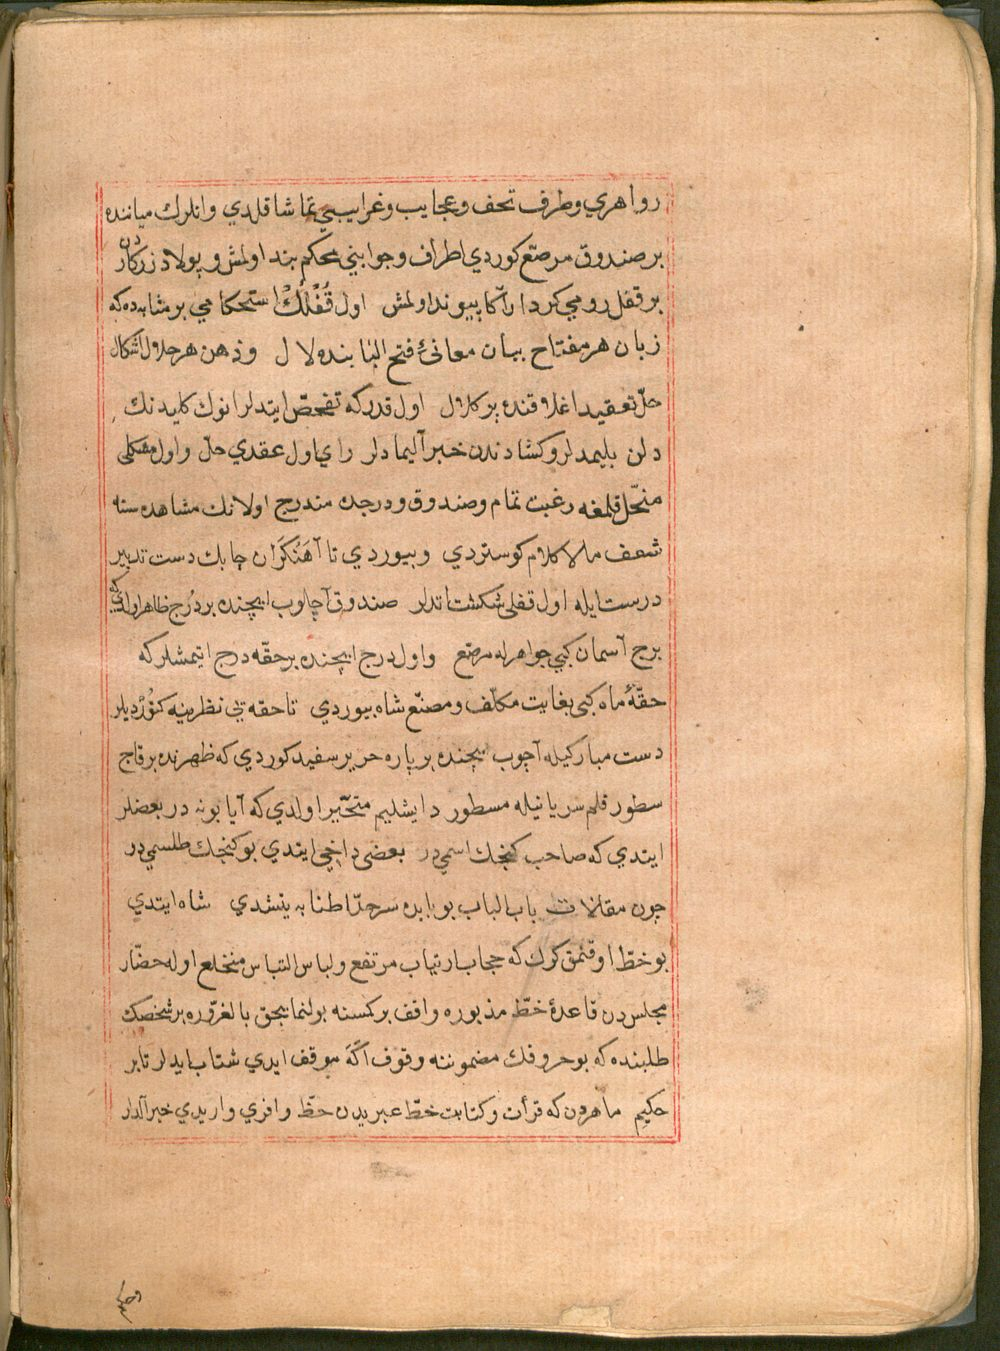 رواهري وطرف تحف وعجايب وغرايبني تماشا قلدي وانلرك مياننده
بر صندوق مرصّع كوردي اطراف وجوانبي محكم بند اولمش و پولاد زركاردن
بر قفل رومي كردار آكا پيوند اولمش اول قُفْلُكْ استحكامي بر مثابه ده كه
زبان هر مفتاح بيان معانئ فتح البابنده لال و ذهن هر حلال اشكال
حلّ تعقيد اغلاقنده پر كلال اول قدر كه تفحّص ايتديلر انوك كليدنك
دلن بليمديلر و كشادندن خبر آليماديلر راي اول عقدي حلّ و اول مشكلى
منحلّ قلمغه رغبت تمام و صندوق و درجده مندرج اولانك مشاهده سنه
شعف مالا كلام كوستردي و بيوردي تا آهَنْكَران چابك دست تدبير
درست ايله اول قفلى شكست اتديلر صندوق آچلوب ايچنده بر دُرج ظاهر اولدي كه
برج آسمان كبي جواهرله مرصّع و اول درج ايچنده بر حقّه درج اتيمشلر كه
حقّهٔ ماه كبى بغايت مكلّف و مصنّع شاه بيوردي تا حقه يي نظرينه كتورديلر
دست مباركيله آچوب ايچنده بر پاره حرير سفيد كوردي كه ظهرنده بر قاچ
سطور قلم سريانيله مسطور دايشليم متحيّر اولدي كه آيا بو نه در بعضلر
ايتدي كه صاحب كنجك اسمي در بعضى داخي ايتدي بو كنجك طلسمي در
چون مقالات باب الباب بو بابده سرحدّ اطنابه يتشدي شاه ايتدي
بو خطّ اوقنمق كرك كه حجاب ارتياب مرتفع و لباس التباس منخلع اوله حضّار
مجلسدن قاعدهٔ خطّ مذبوره واقف بر كمسنه بولنمايجق بالضروره بر شخصك
طلبنده كه بو حروفك مضموننه وقوف اكَا موقف ايدي شتاب ايديلر تا بر
حكيم ماهردن كه قرأت و كتابت خطّ عبريدن حظّ وافري واريدي خبر آلديلر